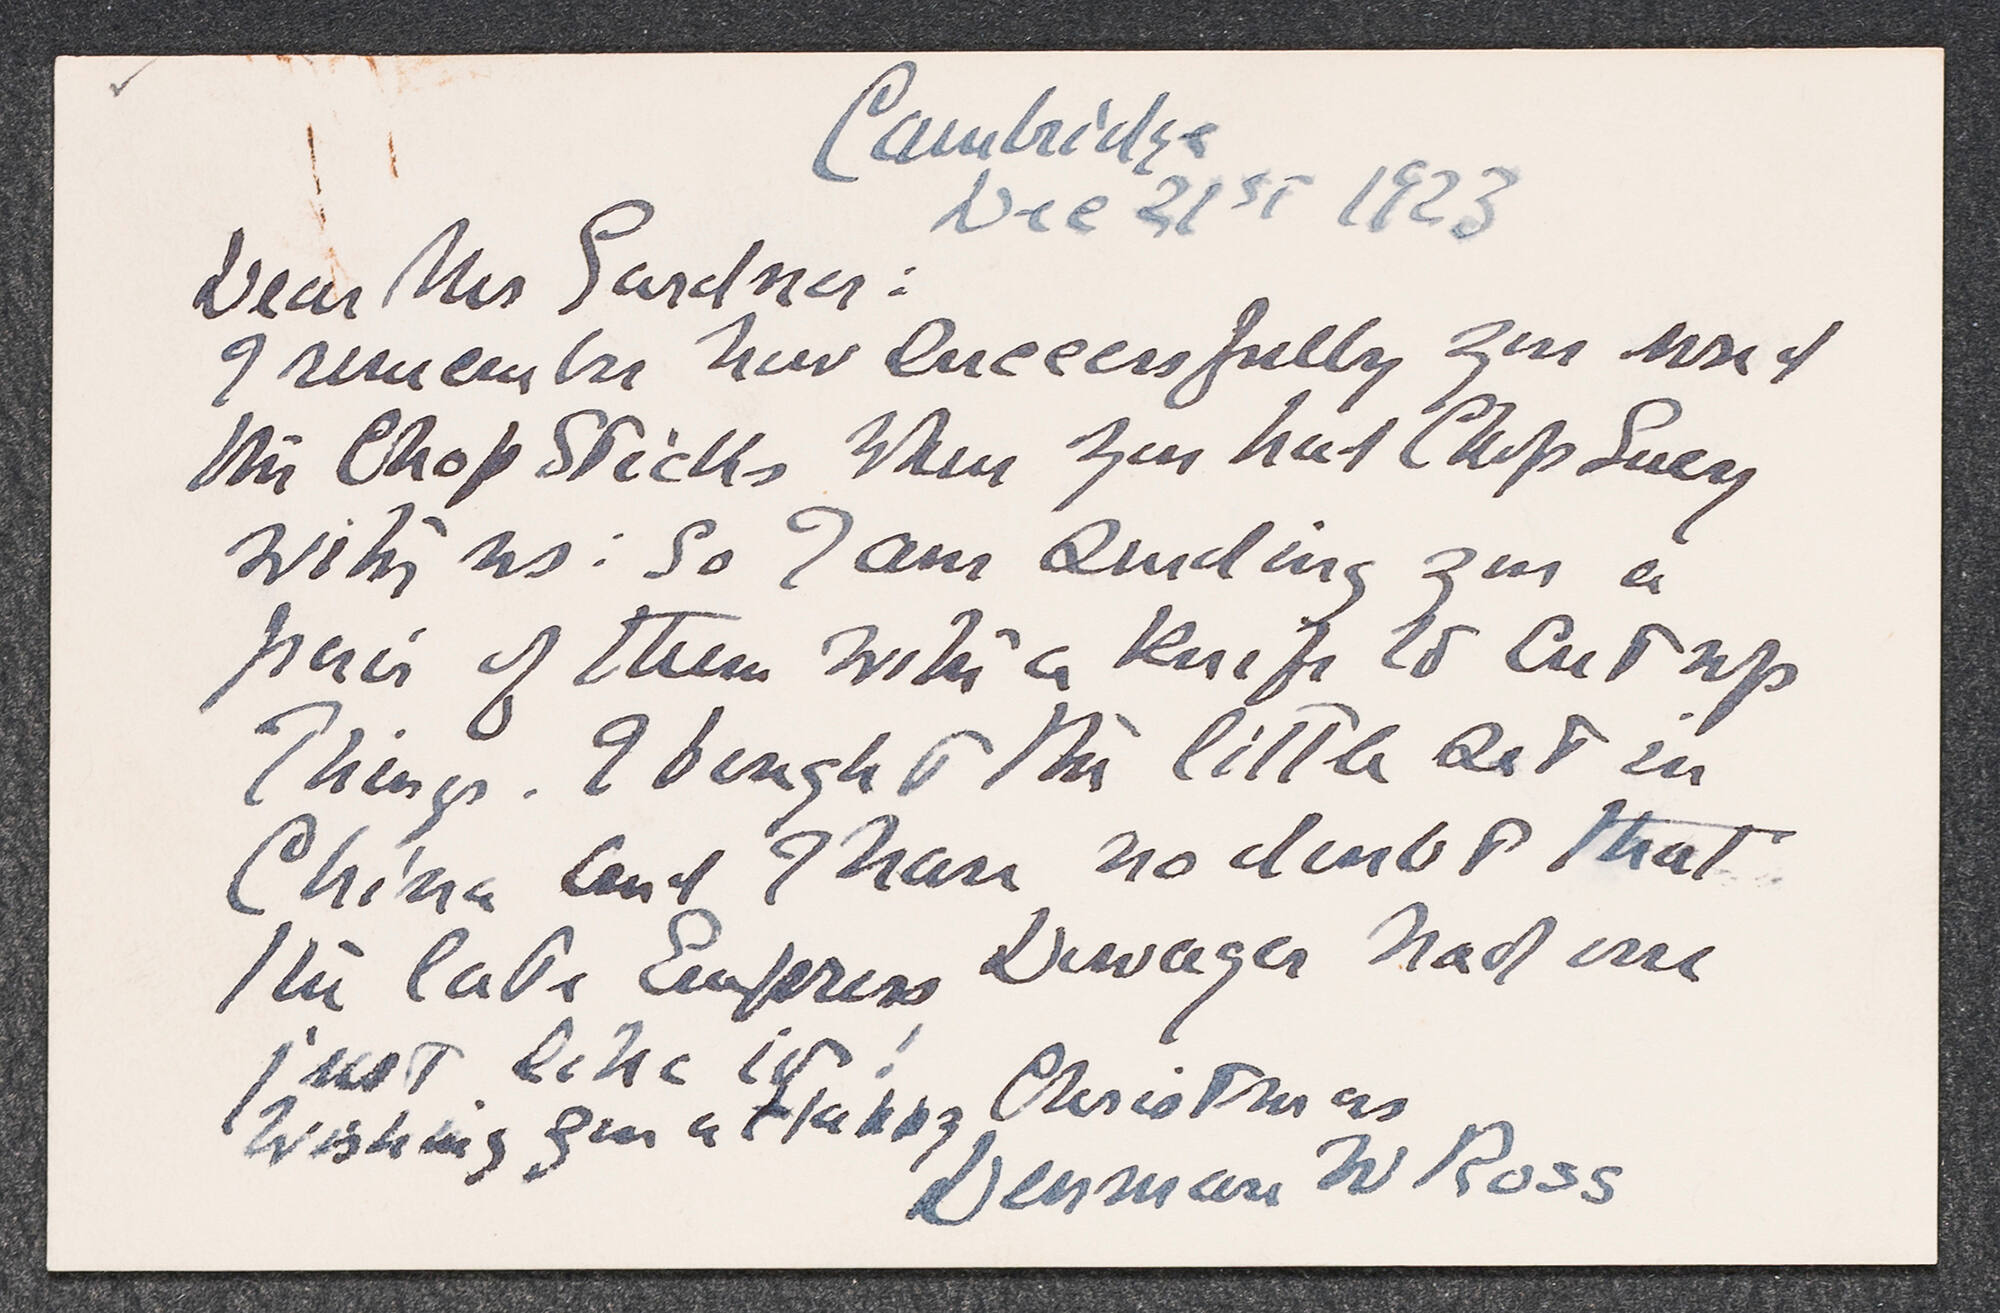 Cambridge
Dec 21st 1923
Dear Mrs Gardner:
I remember how successfully you used
the Chop Sticks when you had Chop Suey
with us: So I am sending you a
pair of them with a knife to cut up
things. I bought the little set in
China and I have no doubt that
the late Empress Dowager had one
just like it!
Wishing you a Happy Christmas
Denman W Ross